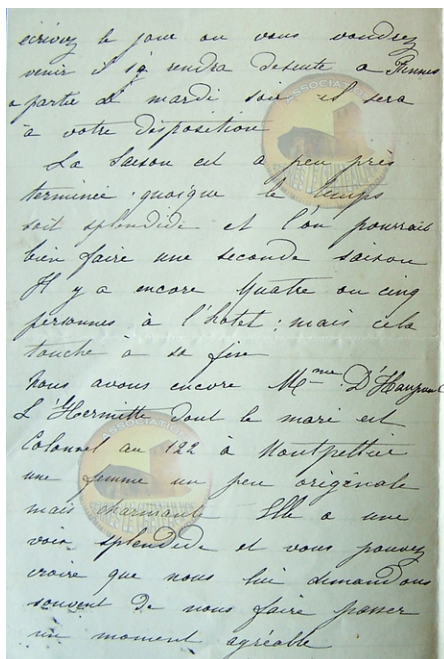 écrivez le jour ou vous voudrez
venir il s'y rendra desuite a Rennes
a partir de mardi soir il sera
à votre disposition
La Saison est a peu près
terminée. quoique le temps
soit splendide et l'on pourrait
bien faire une seconde saison
Il y a encore quatre ou cinq
personnes à l'hotel ; mais cela
touche à sa fin
Nous avons encore Mme
L'Hermitte dont le mari est
Colonel au 122 à Montpellier
une femme un peu originale
mais charmante Elle a une
voix splendide et vous pouvez
croire que nous lui demandons
souvent de nous faire passer
un moment agréable
ASSOCIATION
ASSOCIATION